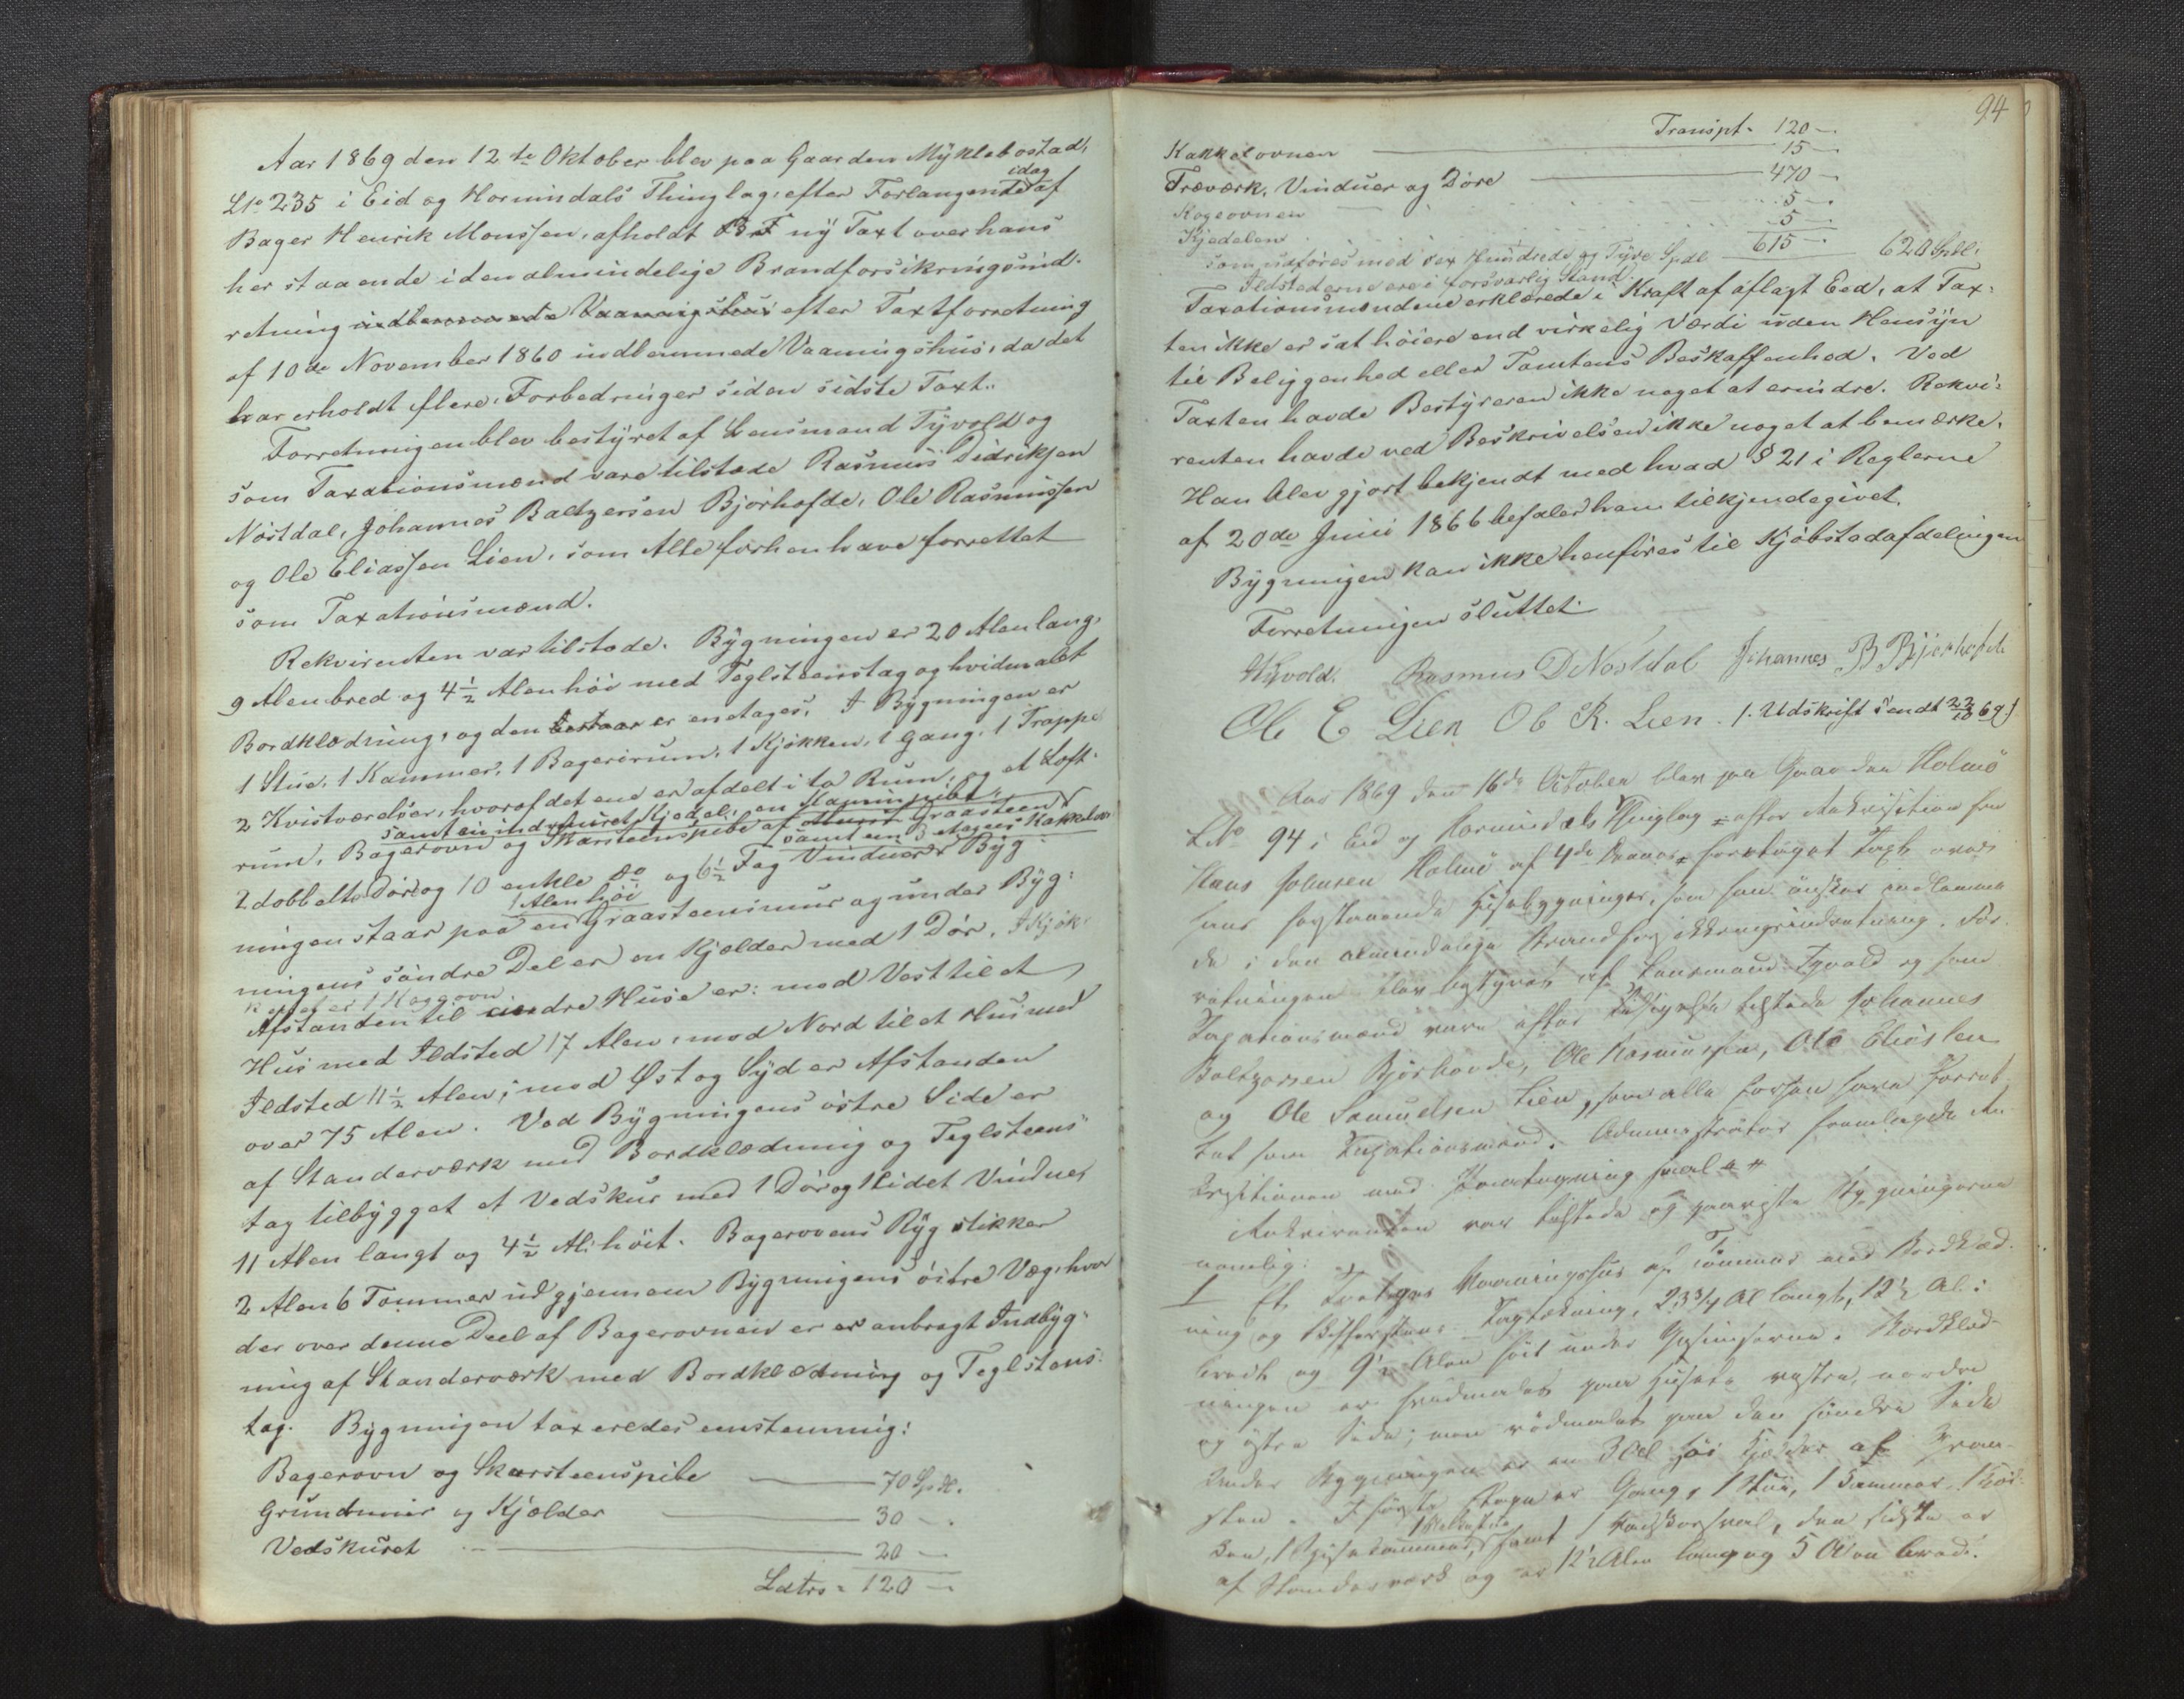 Aar 1869 den 12te Oktober blev paa Gaarden Myklebostad,
LNo 235 i Eid og Hornindals Thinglag, efter Forlangende idag af
Bager Henrik Monssen, afholdt ny Taxt over hans
her staaende i den almindelige Brandforsikringsind-
retning efter Taxtforretning
af 10de November 1860 indlemmede Vaaningshus, da det
har erholdt flere Forbedringer siden sidste Taxt.
Forretningen blev bestyret af Lensmand Tyvold og
som Taxationsmænd vare tilstæde Rasmus Didriksen
Nøstdal, Johannes Baltzersen Bjørhofde, Ole Rasmussen
og Ole Eliassen Lien, som Alle forhen have forrettet
som Taxationsmænd.
Rekvirenten var tilstæde. Bygningen er 20 Alen lang,
9 Alen bred og 4½ Alen høi med Teglsteenstag og hvidmalet
Bordklædning, og den bestaar er enetages. I Bygningen er
1 Stue, 1 Kammer, 1 Bagerirum, 1 Kjøkken, 1 Gang, 1 Trappe
2 Kvistværelser, hvoraf det ene er afdelt i to Rum, og et Loft-
samt en indmuret Kjedel, en
rum, Bagerovn og Skorsteenspibe af Graasteen
samt en 3 Etages Kakkelovn
2 dobbelte Døre og 10 enkle do og 6½ Fag Vinduer. Byg-
1 Alen høi
ningen staar paa en Graasteensmur og under Byg-
ningens søndre Del er en Kjælder med 1 Dør. I Kjøk-
kenet er 1 Kogeovn
Afstanden til andre Huse er: mod Vest til et
Hus med Ildsted 17 Alen, mod Nord til et Hus med
Ildsted 11½ Alen; mod Øst og Syd er Afstanden
over 75 Alen. Ved Bygningens østre Side er
af Standerværk med Bordklædning og Teglsteens-
tag tilbygget et Vedskur med 1 Dør og 1 lidet Vindue,
11 Alen langt og 4½ Al. høit. Bagerovens Ryg stikker
2 Alen 6 Tommer ud gjennem Bygningens østre Væg, hvor
der over denne Deel af Bagerovnen er er anbragt Indbyg-
ning af Standerværk med Bordklædning og Teglstens-
tag. Bygningen taxeredes eenstemmig:
Bagerovn og Skorsteenspibe — 70 Spdl.
Grundmur og Kjælder — 30 —
Vedskuret — 20 —
Latus = 120 —
94
Transpt. 120 —
Kakkelovnen — 15 —
Træværk, Vinduer og Døre — 470 —
Kogeovnen — 5 —
Kjedelen 5 —
615 —
som udføres med sex Hundrede og Tyve Spdl — 620 Spdl.
Ildstederne ere i forsvarlig Stand.
Taxationsmændene erklærede i Kraft af aflagt Eed, at Tax-
ten ikke er sat høiere end virkelig Værdi uden Hensyn
til Beliggenhed eller Tomtens Beskaffenhed. Ved
Taxten havde Bestyreren ikke noget at erindre. Rekvi-
renten havde ved Beskrivelsen ikke noget at bemærke.
Han blev gjort bekjendt med hvad § 21 i Reglerne
af 20de Juni 1866 befaler ham tilkjendegivet.
Bygningen kan ikke henføres til Kjøbstadafdelingen
Forretningen sluttet.
Tyvold. Rasmus D Nøstdal Johannes B Bjørhofde
Ole E Lien Ole R. Lien. /: Udskrift sendt 22/10 69 :/
Aar 1869 den 16de October blev paa Gaarden Holmö
LNo 94 i Eid og Hornindals Thinglag efter Rekvisition fra
Hans Johnsen Holmö af 4de foretaget Taxt over
hans Husebygninger, som han önsker indlemme
de i den almindelige Brandforsikkringsindretning. For
retningen blev bestyret af Lensmand Tyvold og som
Taxationsmænd vare efter tilstede Johannes
Baltzersen Bjørhovde, Ole Rasmussen, Ole Eliassen
og Ole Samuelsen Lien, som alle forhen have forret
tet som Taxationsmænd. Administrator fremlagde Re
kvisitionen med
Rekvirenten var tilstede og paaviste Bygningerne
nemlig:
1 Et Vaaningshus af Tömmer med Bordklæd-
ning og Tagtækning, 23¾ Al langt, 12½ Al.
bredt og 9½ Alen höit under Bordklæd-
ningen er hvidmalet paa Husets vestre, nordre
og östre Side; men rödmalet paa den söndre Side
Under Bygningen er en 3 Al höi Kjelder af Graa-
sten. I första Etage er Gang, 1 Stue, 1 Kammer, 1 Kjök-
ken, 1 samt 1 den sidste er
af Standerværk og er 12½ Alen lang og 5 Alen bred.